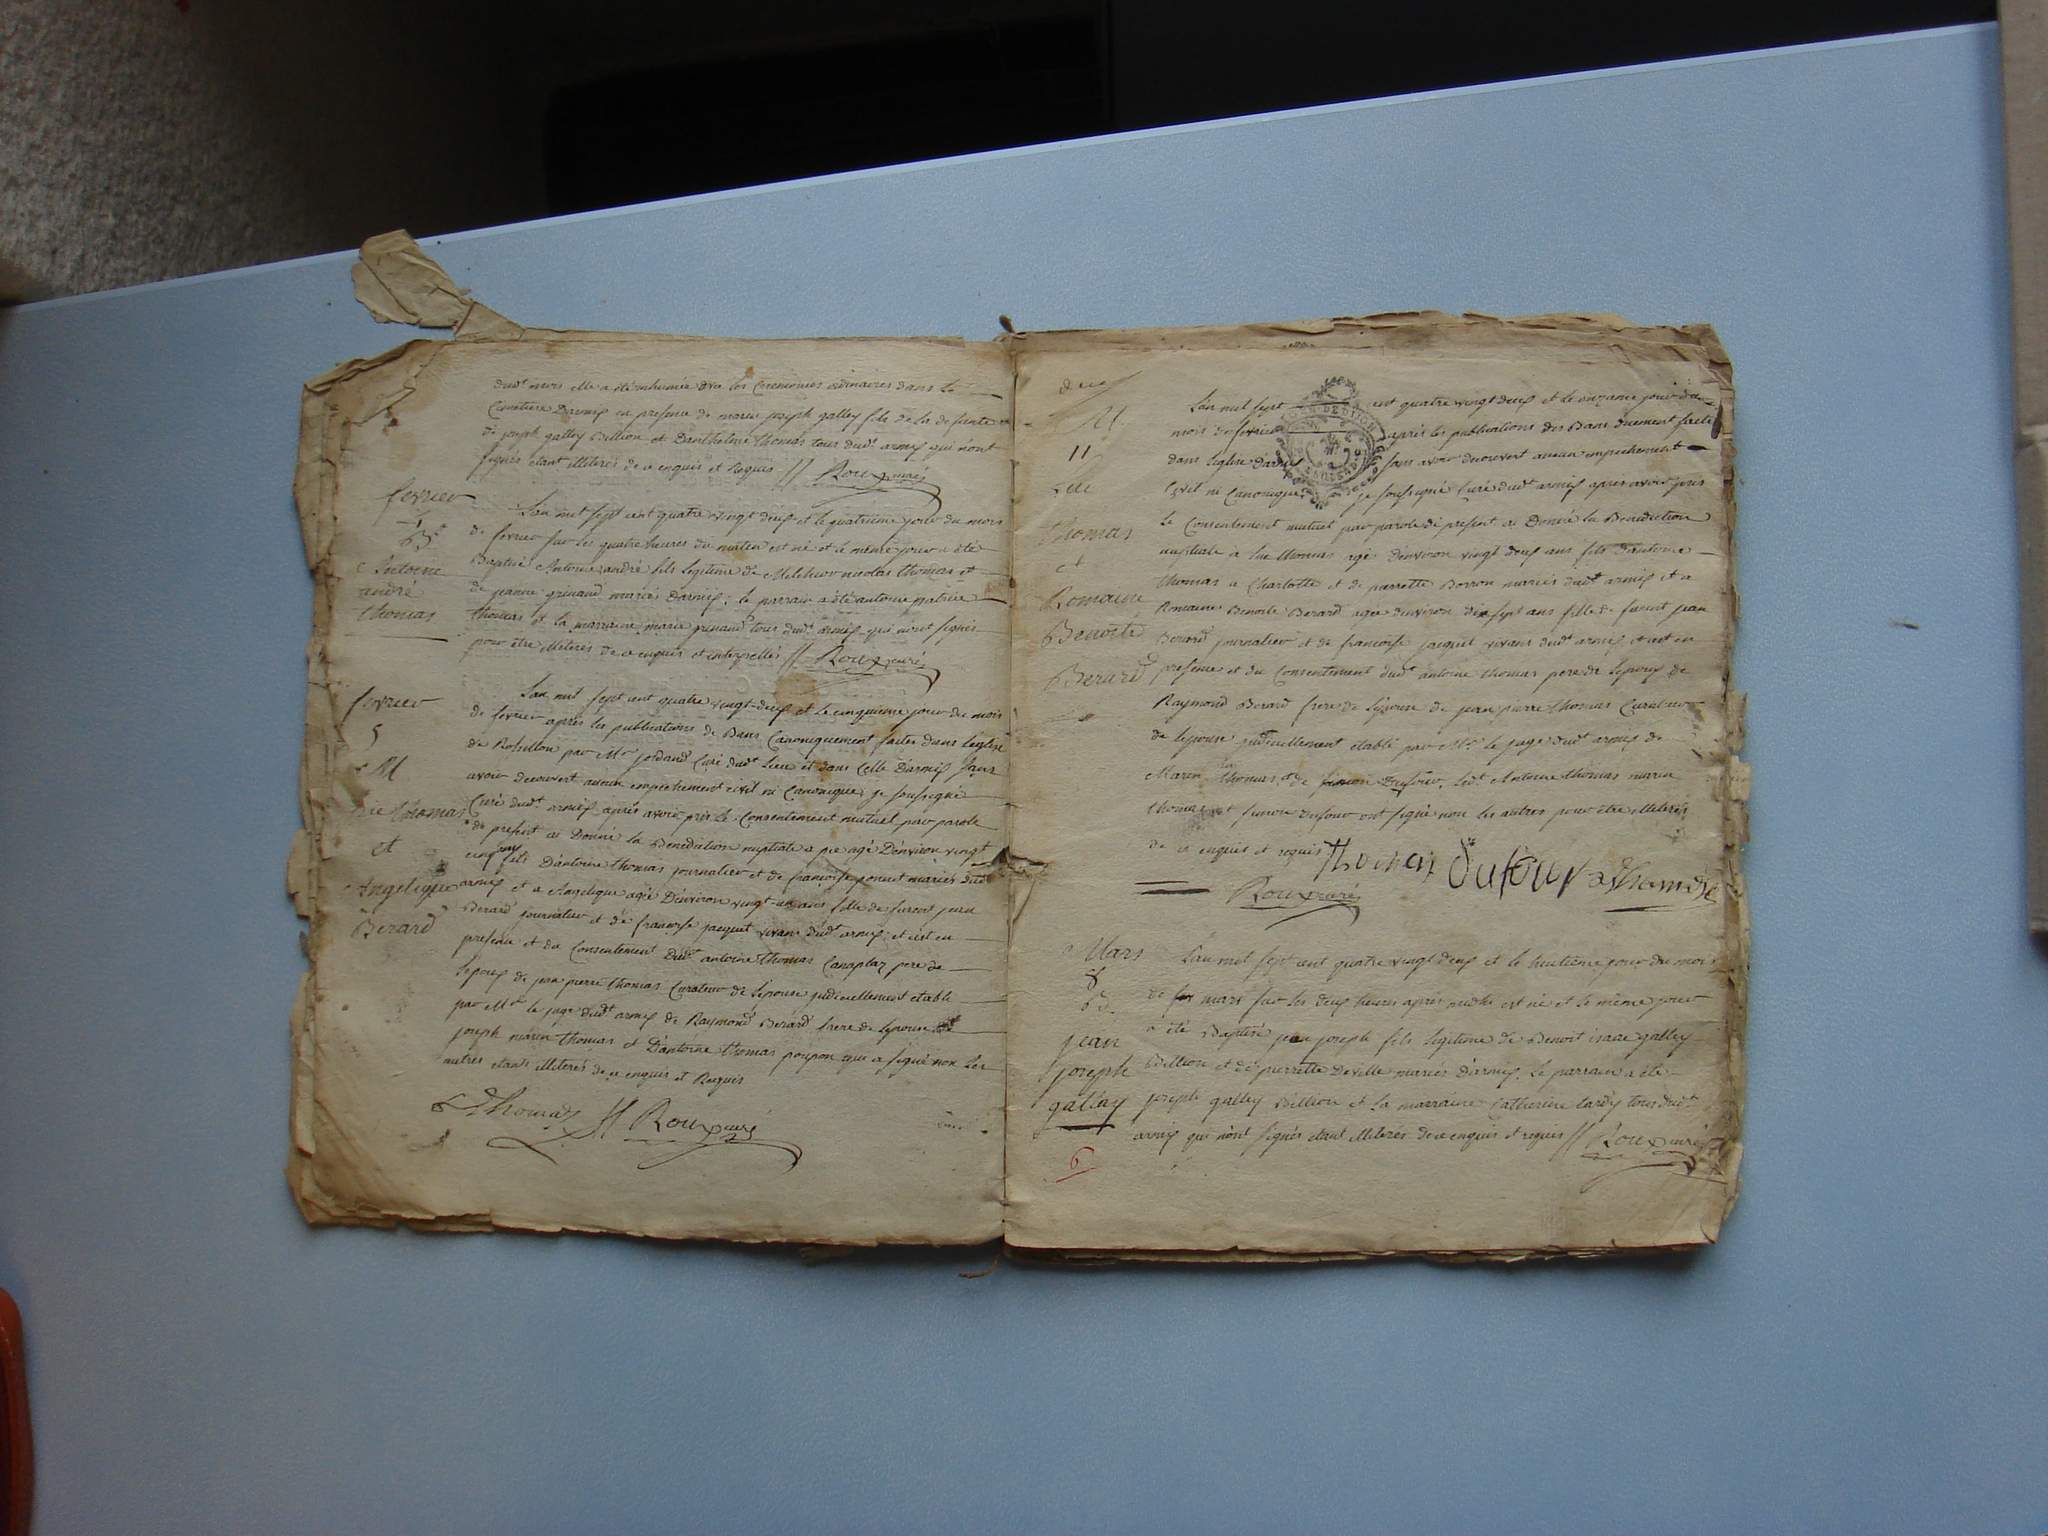 dudt mois elle a été inhumée avec les Ceremonies ordinaires dans le
Cimetiere D'armix en presence de marin joseph galley fils de la defunte
de joseph galley Billion et Danthelme thomas tous dudt armix qui n'ont
signés étant illiterés de ce enquis et Requis // Roux curé
fevrier
B.
Antoine
andré
thomas
L'an mil sept cent quatre vingt deux et le quatrieme jour du mois
de fevrier sur les quatre heures du matin est né et le même jour a été
Baptisé Antoine andré fils legitime de Melchior nicolas thomas et
de jeanne grinand mariés D'armix; le parrain a été antoine patrice
thomas et la marraine marie grinand tous dudt armix qui n'ont signés
pour être illiterés de ce enquis et interpellés // Roux curé
fevrier
5
M
Pie thomas
et
Angelique
Berard
L'an mil sept cent quatre vingt-deux et le cinquieme jour du mois
de fevrier après les publications de Bans Canoniquement faites dans l'eglise
de Rossillon par Mr jordand Curé dudt Lieu et dans Celle D'armix sans
avoir decouvert aucun empechement civil ni Canonique, je soussigné
Curé dudt armix après avoir pris le Consentement mutuel par parole
de present ai Donné la Benediction nuptiale a pie agé D'environ vingt
cinq ans fils D'antoine thomas journalier et de françoise ponnet mariés dudt
armix et a Angelique agée D'environ vingt-un ans fille de furent jean
Berard journalier et de françoise jacquet vivans dudt armix; et c'est en
presence et du Consentement dudt antoine thomas Canaplaz pere de
l'epoux de jean pierre thomas Curateur de l'epouse judiciellement etabli
par Mr le juge dudt armix de Raymond Berard frere de l'epouse de
joseph marin thomas et D'antoine thomas poupon qui a signé non les
autres etants illiterés de ce enquis et Requis
thomas // Roux curé
deux
M
11
thomas
et
Romaine
Benoite
Berard
L'an mil sept cent quatre vingt deux et le onzieme jour du
mois de fevrier après les publications des Bans duement faites
dans l'eglise d'armix sans avoir decouvert aucun empechement
Civil ni Canonique je soussigné Curé dudt armix après avoir pris
le Consentement mutuel par parole de present ai Donné la Benediction
nuptiale à thomas agé d'environ vingt deux ans fils d'antoine
thomas a Charlotte et de pierrette Borron mariés dudt armix et a
Romaine Benoite Berard agée d'environ dix sept ans fille de furent jean
Berard journalier et de francoise jacquet vivans dudt armix et c'est en
presence et du Consentement dudt antoine thomas pere de l'epoux de
Raymond Berard frere de l'epouse de jean pierre thomas Curateur
de l'epouse judiciellement etabli par Mr le juge dudt armix de
Marin thomas, et de simon Dufour, Ledt Antoine thomas marin
thomas et simon dufour ont signé non les autres pour être illiterés
de ce enquis et requis thomas Dufour a thomas
Roux curé
Mars
8
B.
jean
joseph
gallay
L'an mil sept cent quatre vingt deux et le huitieme jour du mois
de mars sur les deux heures après midi est né et le même jour
a été Baptisé jean joseph fils legitime de Benoit isaac galley
Billion et de pierrette Deville mariés d'armix. Le parrain a été
joseph galley Billion et la marraine Catherine tardy tous dudt
armix qui n'ont signés étant illiterés de ce enquis et requis // Roux curé
6